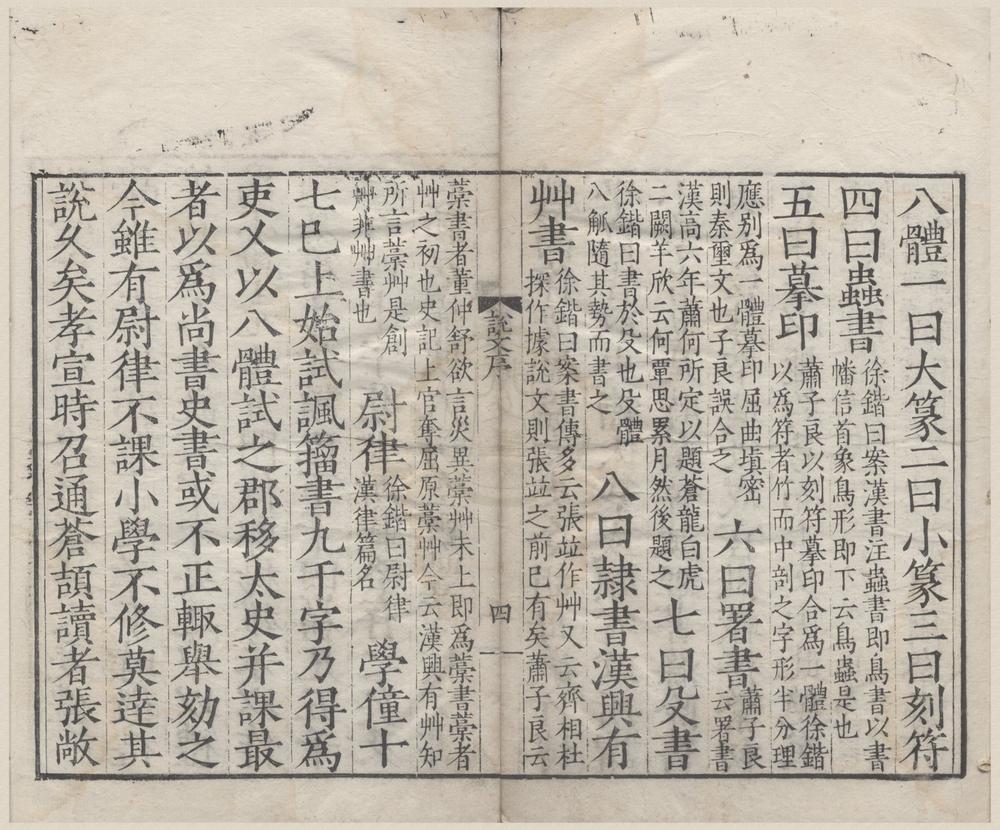 八體一曰大篆二曰小篆三曰刻符
四曰蟲書徐鍇曰案漢書注蟲書即鳥書以書
幡信首象鳥形即下云鳥蟲是也
五曰摹印蕭子良以刻符摹印合爲一體徐鍇
以爲符者竹而中剖之字形半分理
應别爲一體摹印屈曲塡密
則秦璽文也子良誤合之
六曰署書蕭子良
云署書
漢高六年蕭何所定以題蒼龍白虎
二闕羊欣云何覃思累月然後題之
七曰殳書
徐鍇曰書於殳也殳體
八觚隨其勢而書之
八曰隸書漢興有
艸書徐鍇曰案書傳多云張竝作艸又云齊相杜
探作據說文則張竝之前已有矣蕭子良云
說文序
四
藁書者董仲舒欲言災異藁艸未上即爲藁書藁者
艸之初也史記上官奪屈原藁艸今云漢興有艸知
所言藁艸是創
艸非艸書也
尉律徐鍇曰尉律
漢律篇名
學僮十
七巳上始試諷籀書九千字乃得爲
吏又以八體試之郡移太史并課最
者以爲尚書史書或不正輙舉劾之
今雖有尉律不課小學不修莫達其
說久矣孝宣時召通蒼頡讀者張敞